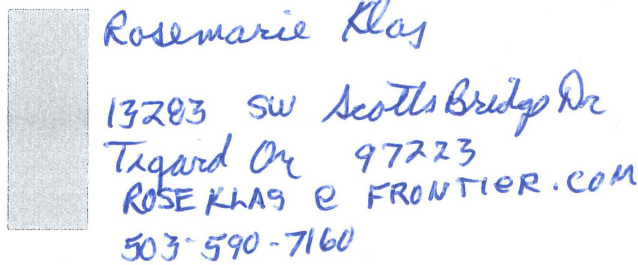 Rosemarie Klas
13283 SW Scotts Bridge Dr
Tigard Or 97223
ROSEKLAS @ FRONTIER.COM
503-590-7160